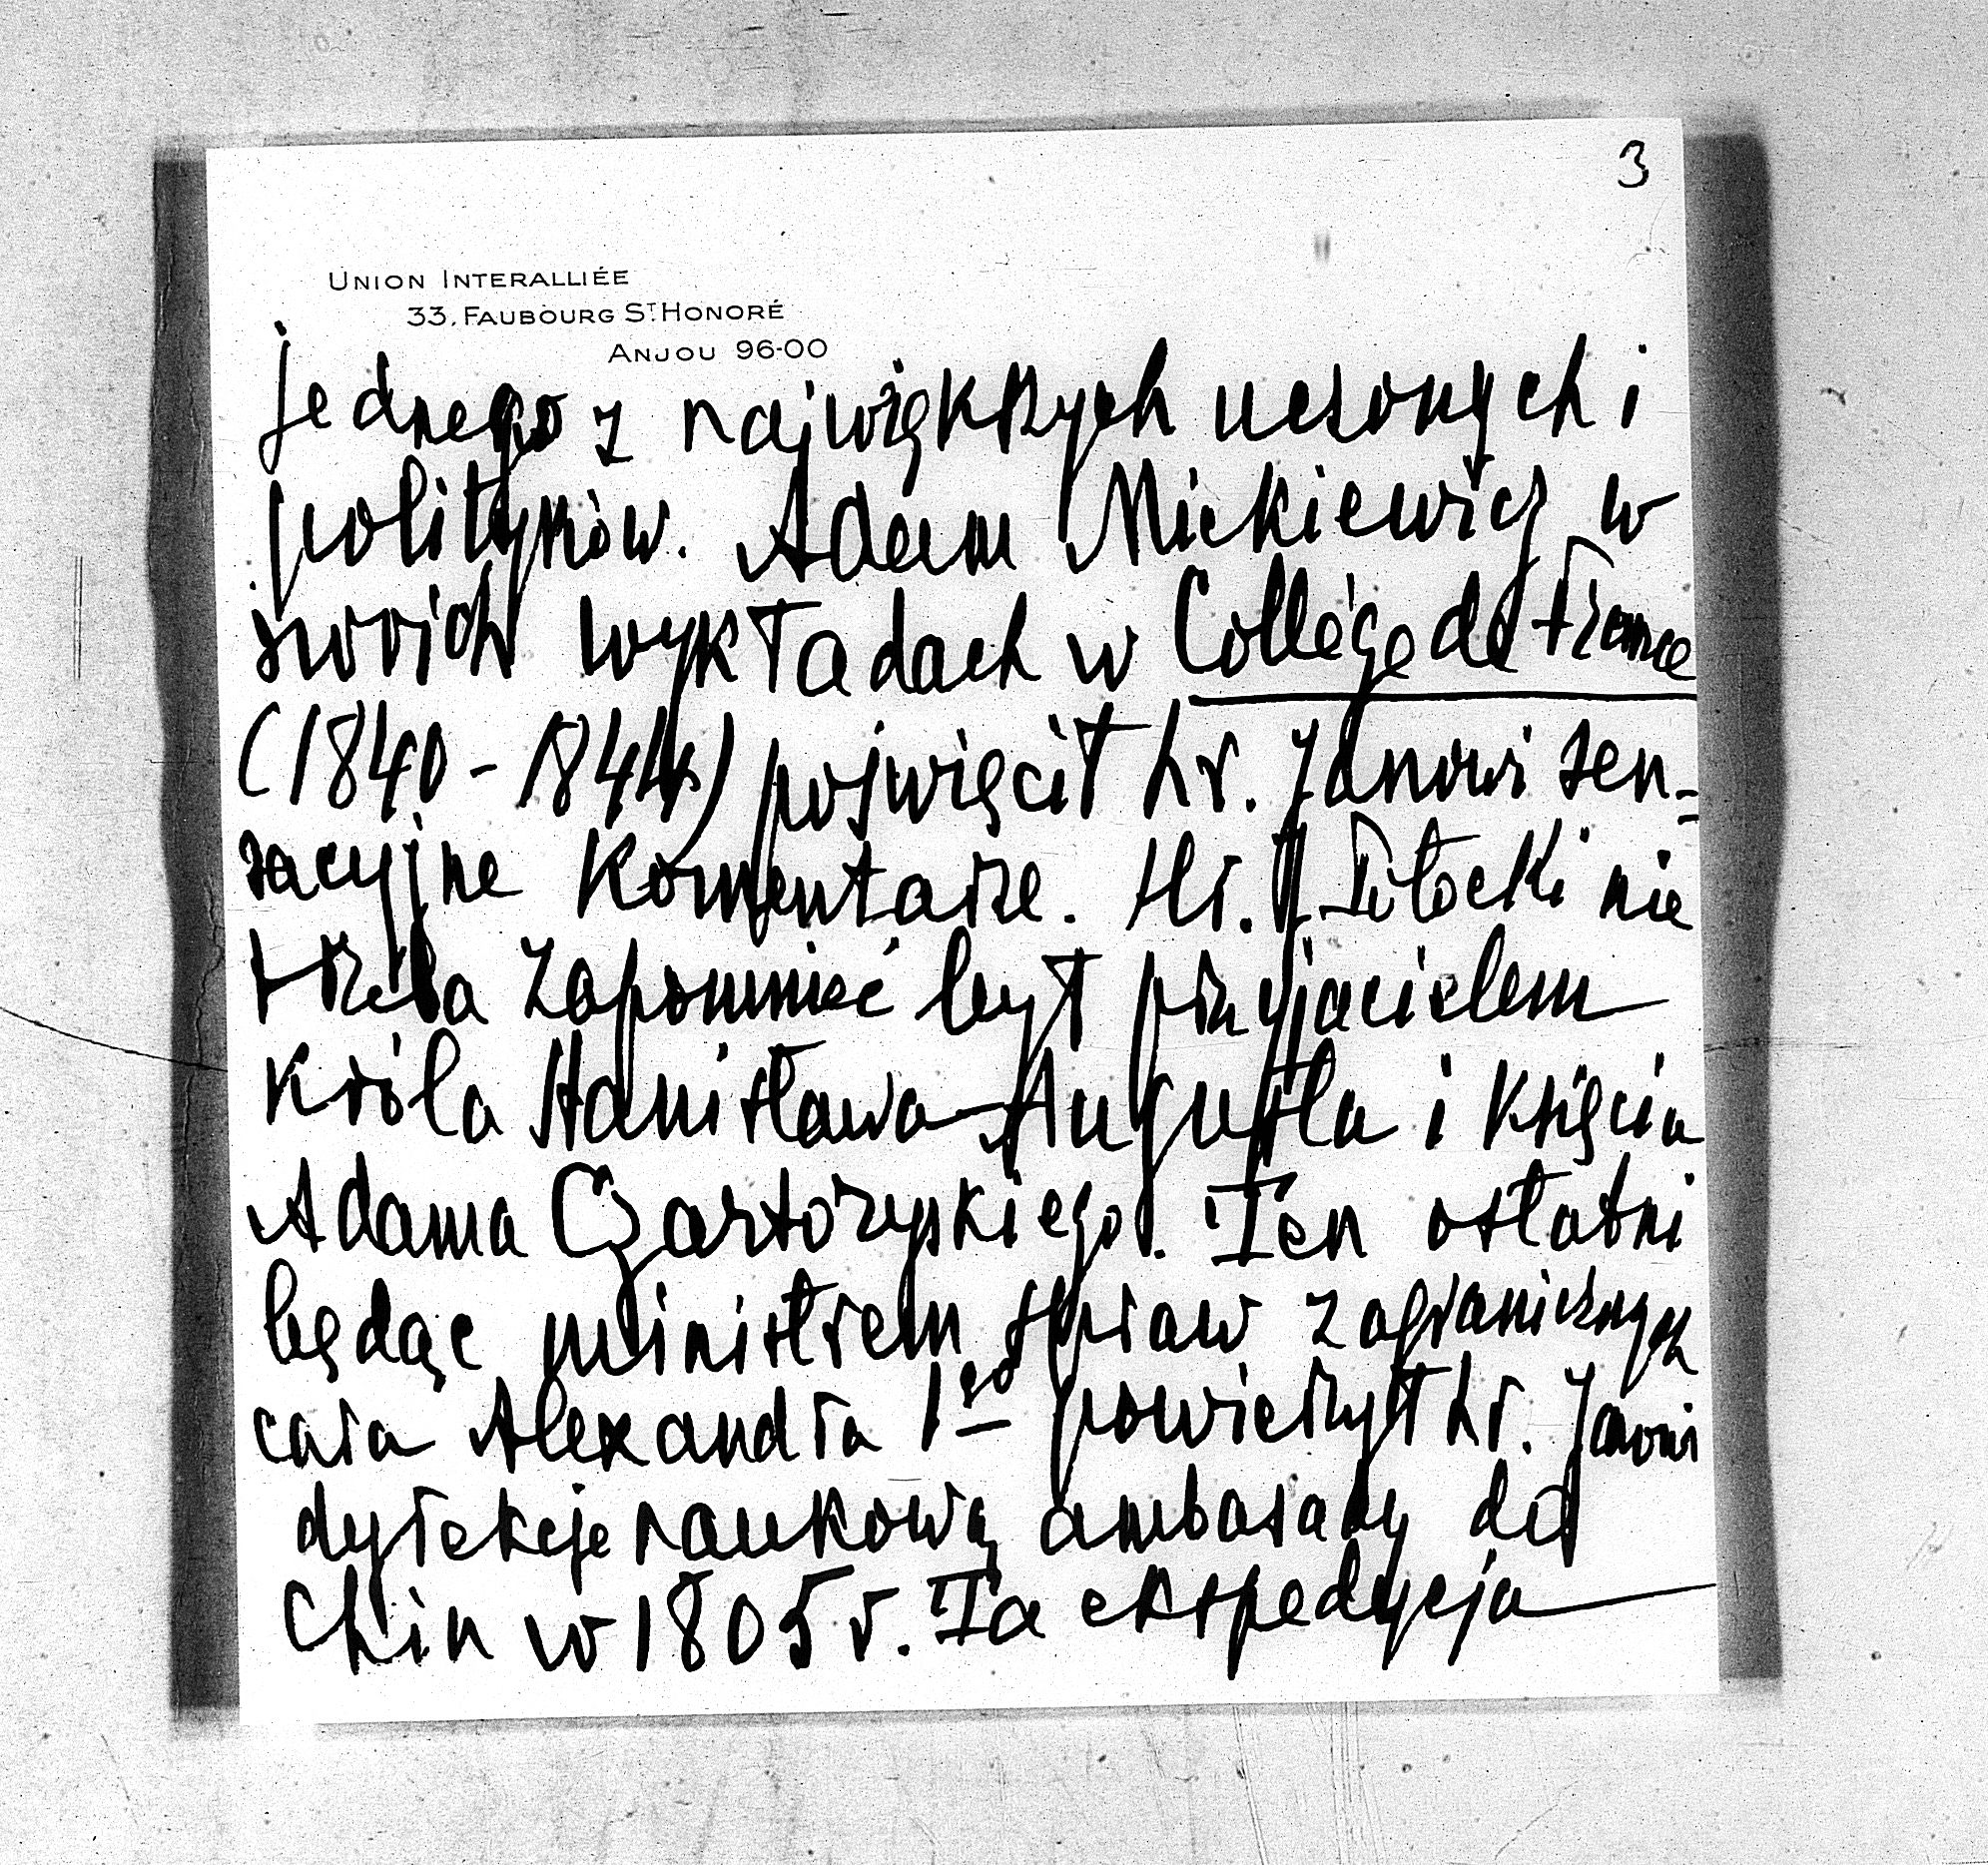 3
UNION INTERALLIÉE
33, FAUBOURG ST. HONORÉ
ANJOU 96-00
jednego z największych uczonych i
polityków. Adam Mickiewicz w
swoich wykładach w Collège de France
(1840 - 1844) poświęcił hr. Janowi sen-
zacyjne komentarze. Hr. J. Potocki nie
trzeba zapomnieć był przyjacielem
Króla Stanisława-Augusta i Księcia
Adama Czartoryskiego. Ten ostatni
będąc ministrem spraw zagranicznych
cara Alexandra 1go powierzył hr. Janowi
dyrekcje naukową ambasady do
Chin w 1805 r. Ta ekspedycja